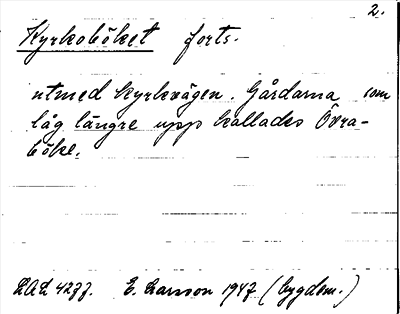 2.
Kyrkoböket forts.
utmed kyrkvägen. Gårdarna som
låg längre upp kallades Övra-
böke.
E. Larsson 1947 (bygdem.)